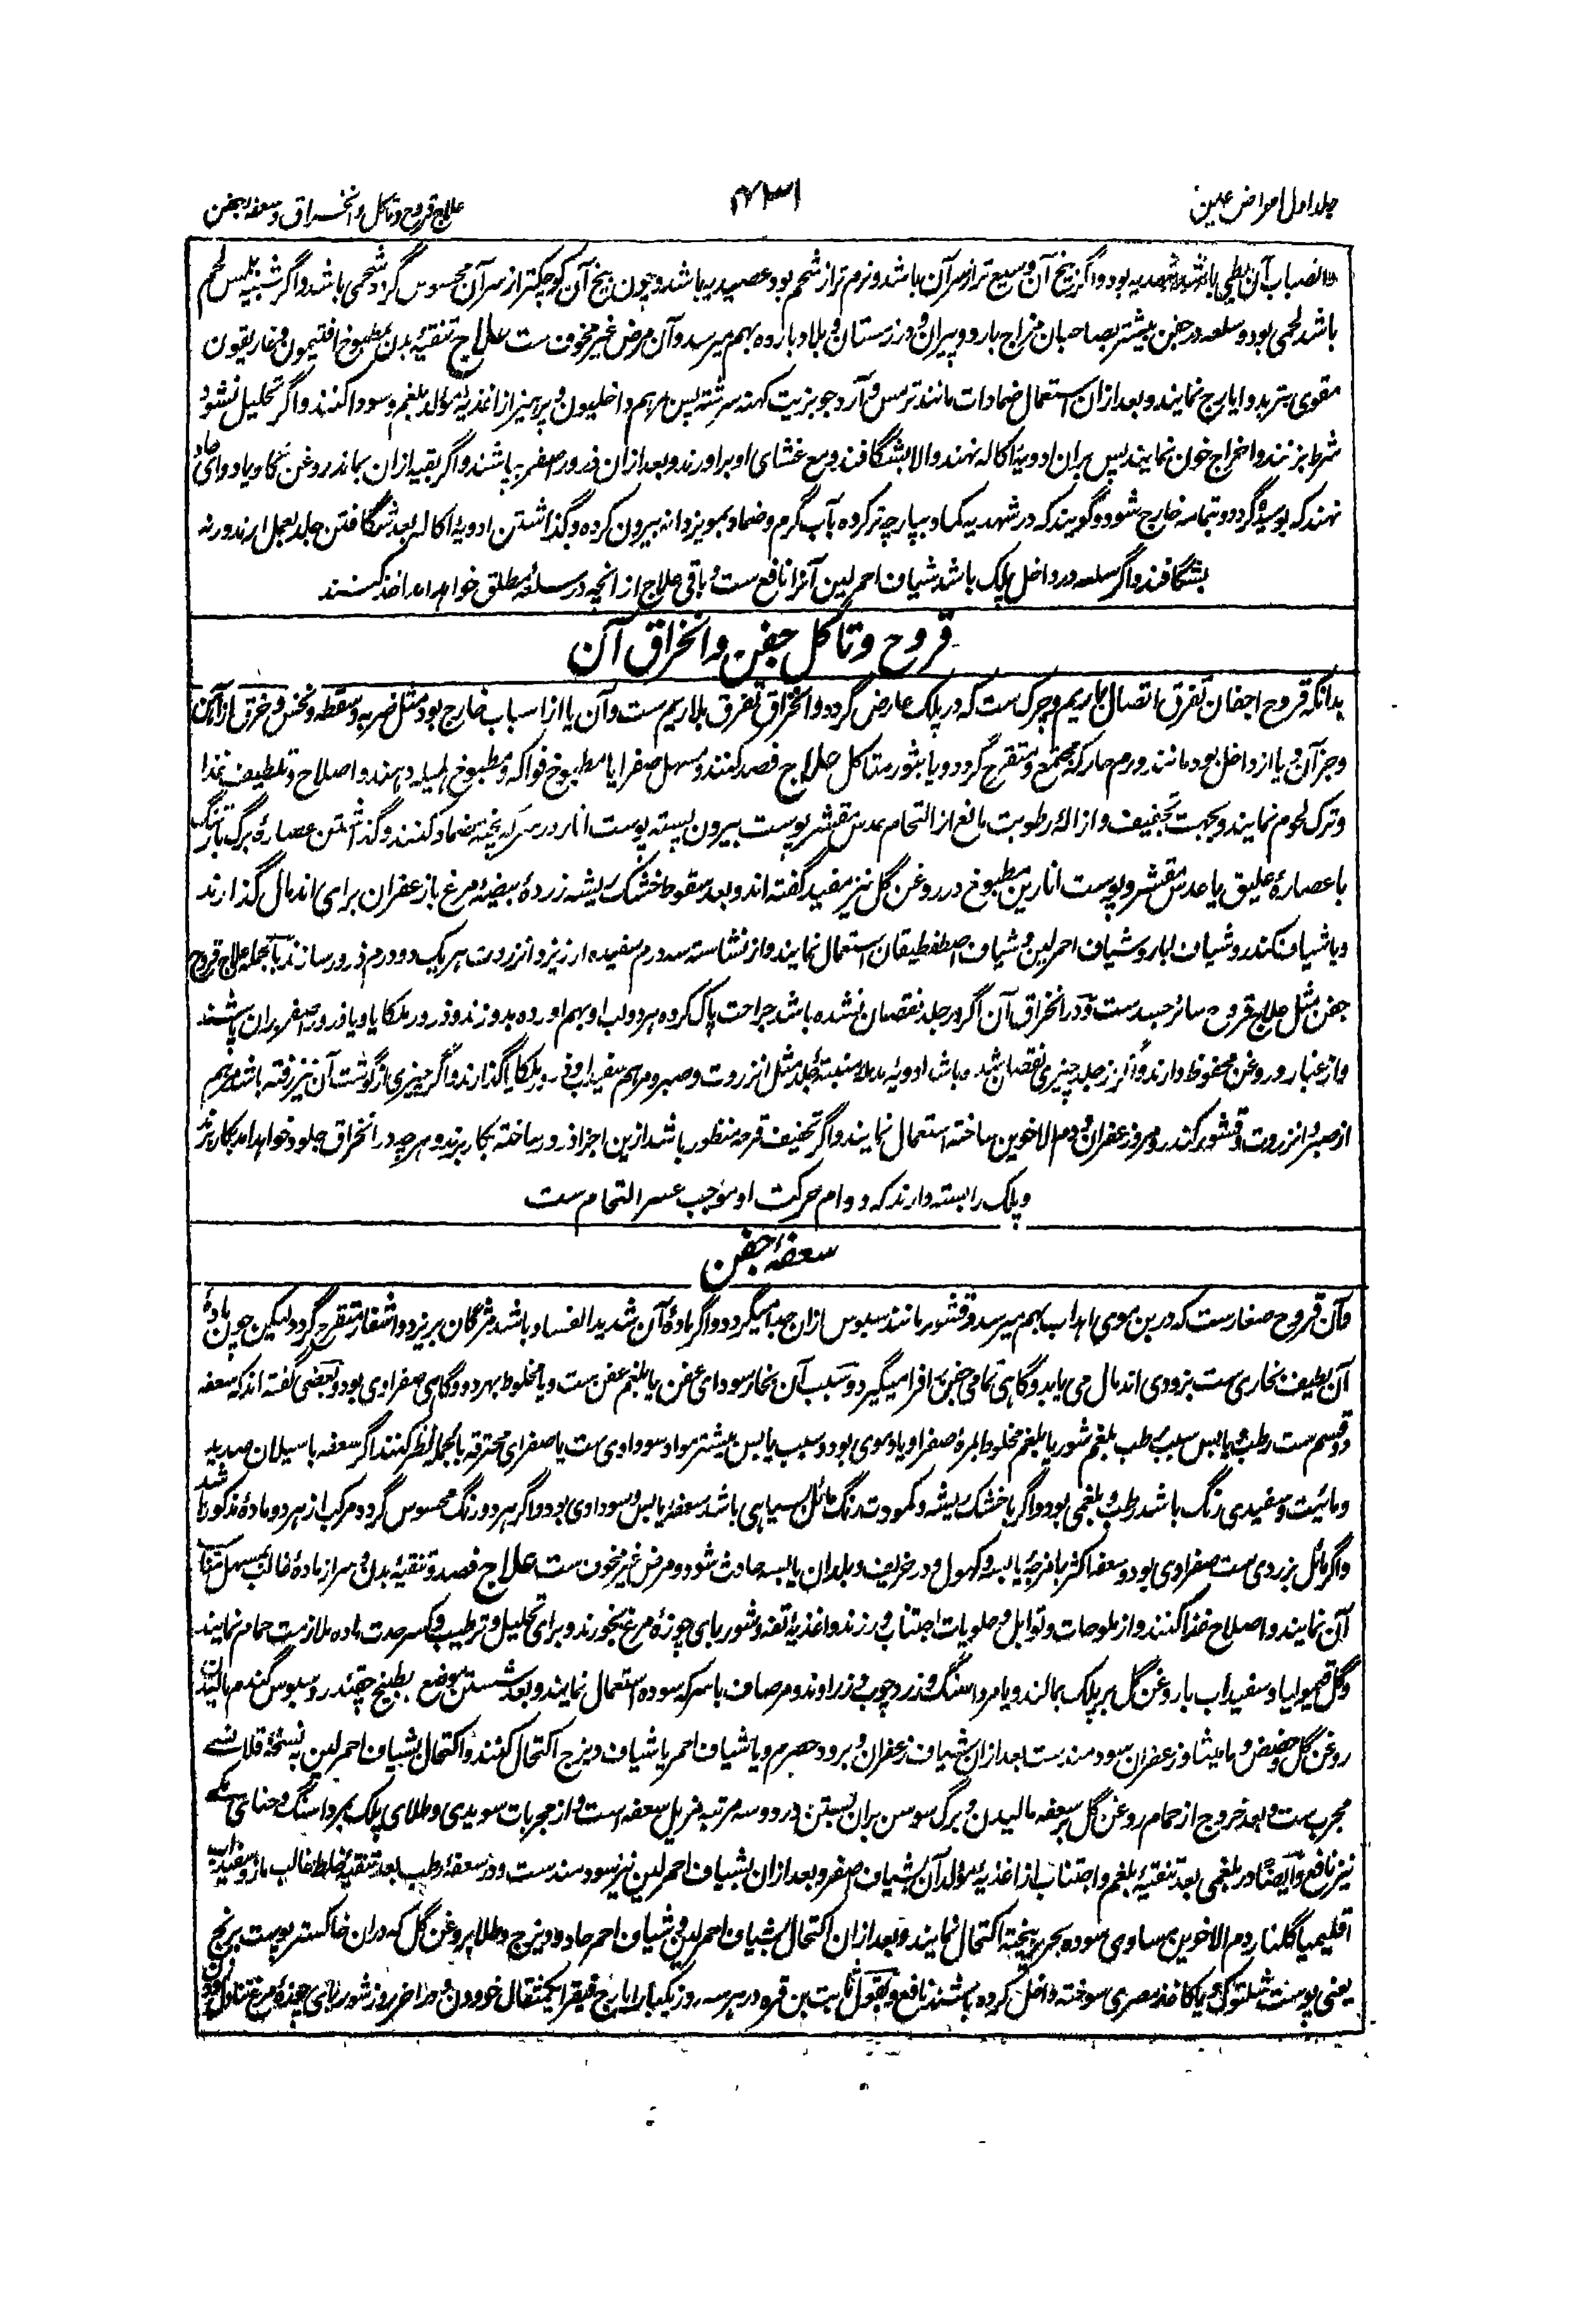 جلد اول امراض عین
۴۳۱
علاج قروح و تاکل و انخراق و سعفه جفن
و انصباب آن بطی باشد شهدیه بود و اگر بیخ آن وسیع تر از سر آن باشد و نرم تر از شحم بود عصیدیه باشد و چون بیخ آن کوچکتر از سر آن محسوس گردد شحمی باشد و اگر شبیه بلمس لحم
باشد لحمی بود و سلعه در جفن بیشتر بصاحبان مزاج بارد و پیران و در زمستان و بلاد بارده بهم میرسد و آن مرض غیر مخوف ست علاج تنقیهٔ بدن بمطبوخ افتیمون و غاریقون
مقوی بتربد و ایارج نمایند و بعد ازان استعمال ضمادات مانند ترمس و آرد جو بزیت کهنه سرشته پس مرهم داخلیون و پرهیز از اغذیهٔ مولد بلغم و سودا کنند و اگر تحلیل نشود
شرط بزنند و اخراج خون نمایند پس بران ادویهٔ اکاله نهند و الا بشگافند و مع غشای او برآورند و بعد ازان ذرور اصفر بپاشند و اگر بقیه ازان بماند روغن گاو یا دوای حاد
نهند که بوسیده گردد و بتمامه خارج شود و گویند که در شهدیه کماد بپارچه تر کرده بآب گرم و ضماد بمویز دانه بیرون کرده و گذاشتن ادویهٔ اکاله بعد شگافتن جلد بعمل ارند ورنه
بشگافند و اگر سلعه در داخل پلک باشد شیاف احمر لین آنرا نافع ست و باقی علاج از انچه در سلعهٔ مطلق خواهد امد اخذ کنند
قروح و تاکل جفن و انخراق آن
بدانکه قروح اجفان تفرق اتصال باریم و چرک ست که در پلک عارض گردد و انخراق تفرق بلاریم ست و آن یا از اسباب خارج بود مثل ضربه و سقطه و نخس و خرق از آهن
و جز آن و یا از داخل بود مانند ورم حار که مجتمع و متقرح گردد و یا بثور متاکل علاج فصد کنند و مسهل صفرا یا مطبوخ فواکه و مطبوخ هلیله دهند و اصلاح و تلطیف غذا
و ترک لحوم نمایند و بجهت تجفیف و ازالهٔ رطوبت مانع از التحام عدس مقشر پوست بیرون پسته پوست انار در سرکه پخته ضماد کنند و گذاشتن عصارهٔ برگ بارتنگ
با عصارهٔ علیق یا عدس مقشر و پوست انارین مطبوخ در روغن گل نیز مفید گفته اند و بعد سقوط خشک ریشه زردهٔ بیضهٔ مرغ با زعفران برای اندمال گذارند
و یا شیاف کندر و شیاف ابار و شیاف احمر لین و شیاف اصطفطیقان استعمال نمایند و از نشاسته سه درم سفیده ارزیز و انزروت هر یک دو درم ذرور سازند بالجمله علاج قروح
جفن مثل علاج قروح سائر جسد ست و در انخراق آن اگر در جلد نقصان نشده باشد جراحت پاک کرده هر دو لب او بهم اورده بدوزند و ذرور ملکایا و یا ذرور اصفر بران پاشند
و از غبار و روغن محفوظ دارند و اگر از جلد چیزی نقصان شده باشد ادویه مدمله منبتهٔ جلد مثل انزروت و صبر و مرهم سفیداب و ذرور ملکایا گذارند و اگر چیزی از گوشت آن نیز رفته باشد مرهم
از صبر و انزروت و قشور کندر و مر و زعفران و دم الاخوین ساخته استعمال نمایند و اگر تجفیف قرحه منظور باشد ازین اجزا ذرور ساخته بکار برند و هر چه در انخراق جلود خواهد امد بکار برند
و پلک را بسته دارند که دوام حرکت او موجب عسر التحام ست
سعفهٔ جفن
و آن قروح صغار ست که در بن موی اهداب بهم میرسد و قشور مانند سبوس ازان جدا میگردد و اگر مادهٔ آن شدید الفساد باشد مژگان بریزد و اشفار متقرح گردد لیکن چون مادهٔ
آن لطیف بخاری ست بزودی اندمال می یابد و گاهی تمامی جفن را فرا میگیرد و سبب آن بخار سودای عفن یا بلغم عفن ست و یا مخلوط بهر دو و گاهی صفراوی بود و بعضی گفته اند که سعفه
دو قسم ست رطب و یابس سبب رطب بلغم شور یا بلغم مخلوط بمرهٔ صفرا و یا دموی بود و سبب یابس بیشتر مواد سوداوی ست یا صفرای محترقه بالجمله نظر کنند اگر سعفه با سیلان صدید
و مائیت و سفیدی رنگ باشد رطب و بلغمی بود و اگر با خشک ریشه و کمودت رنگ مائل بسیاهی باشد سعفهٔ یابس و سوداوی بود و اگر هر دو رنگ محسوس گردد مرکب از هر دو مادهٔ مذکور باشد
و اگر مائل بزردی ست صفراوی بود و سعفه اکثر بامزجهٔ یابسه و کهول و در خریف و بلدان یابسه حادث شود و مرض غیر مخوف ست علاج فصد و تنقیهٔ بدن و سر از مادهٔ غالب بمسهل متقاضی
آن نمایند و اصلاح غذا کنند و از ملوحات و توابل و حلویات اجتناب ورزند و اغذیهٔ تفه و شوربای چوزهٔ مرغ بخورند و برای تحلیل و ترطیب و کسر حدت ماده ملازمت حمام نمایند
و گل قیمولیا و سفیداب با روغن گل بر پلک بمالند و یا مرداسنگ و زردچوب و زراوند و مر صاف با سرکه سوده استعمال نمایند و بعد شستن موضع بطبیخ چقندر و سبوس گندم مالیدن
روغن گل و حضض و مامیثا و زعفران سودمند ست بعد ازان بشیاف زعفران و برود حصرم و یا شیاف احمر یا شیاف دیزج اکتحال کنند و اکتحال بشیاف احمر لین به نسخهٔ قلانسی
مجرب ست و بعد خروج از حمام روغن گل بر سعفه مالیدن و برگ سوسن بران بستن در دو سه مرتبه مزیل سعفه است و از مجربات سویدی و طلای پلک بمرداسنگ و حنای مکی
نیز نافع و ایضاً در بلغمی بعد تنقیهٔ بلغم و اجتناب از اغذیهٔ مولد آن بشیاف اصفر و بعد ازان بشیاف احمر لین نیز سودمند ست و در سعفهٔ رطب بعد تنقیهٔ خلط غالب مازو سفیداب
اقلیمیا گلنار دم الاخوین مساوی سوده بحریر بیخته اکتحال نمایند و بعد ازان اکتحال بشیاف احمر لین و شیاف احمر حاد و دیزج و طلا بروغن گل که دران خاکستر پوست برنج
یعنی پوست شلتوک و یا کاغذ مصری سوخته داخل کرده باشند نافع و بقول ثابت بن قره در هر سه روز یکبار ایارج فیقرا یکمثقال خوردن و در آخر روز شوربای چوزهٔ مرغ تناول